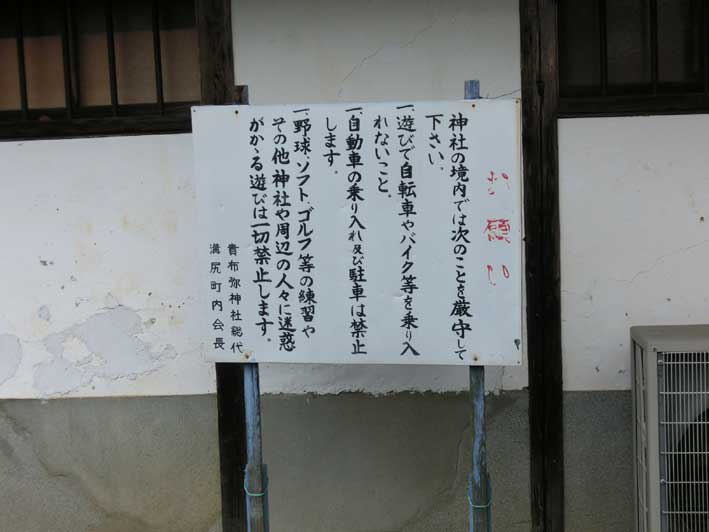 お願い
神社の境内では次のことを厳守して
下さい。
一、遊びで自転車やバイク等を乗り入
れないこと。
一、自動車の乗り入れ及び駐車は禁止
します。
一、野球、ソフト、ゴルフ等の練習や
その他 神社や周辺の人々に迷惑
がかゝる遊びは一切禁止します。
貴布弥神社総代
溝尻町内会長